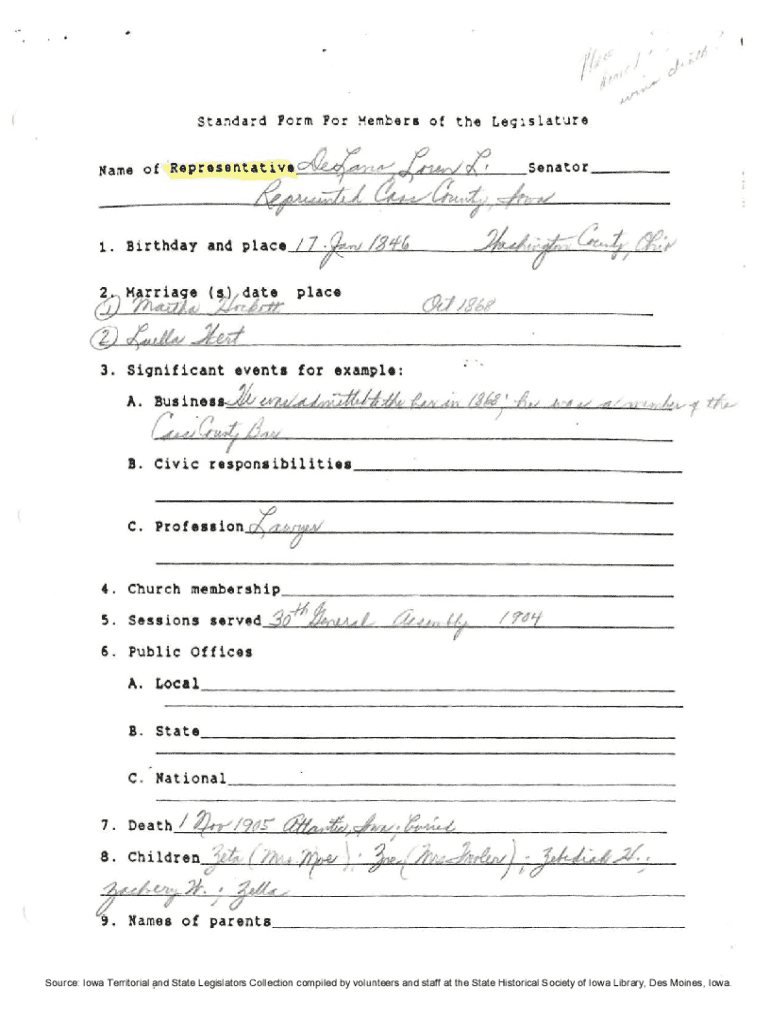 Standard Form For Members of the Legislature
Name of Representative DeLano, Loren L. Senator
Represented Cass County, Iowa
1. Birthday and place 17 Jan 1846 Washington County, Ohio
2. Marriage (s) date place
① Martha Oct 1868
② Luella Hert
3. Significant events for example:
A. Business He was admitted to the bar in 1868; he was a member of the
Cass County Bar
B. Civic responsibilities
C. Profession Lawyer
4. Church membership
5. Sessions served 30th General Assembly 1904
6. Public Offices
A. Local
B. State
C. National
7. Death 1 Nov 1905 Atlantic, Iowa; buried
8. Children Zeta (Mrs. Moe); Zoe (Mrs. ); Zebediah H.;
Zachery W.; Zella
9. Names of parents
Source: Iowa Territorial and State Legislators Collection compiled by volunteers and staff at the State Historical Society of Iowa Library, Des Moines, Iowa.